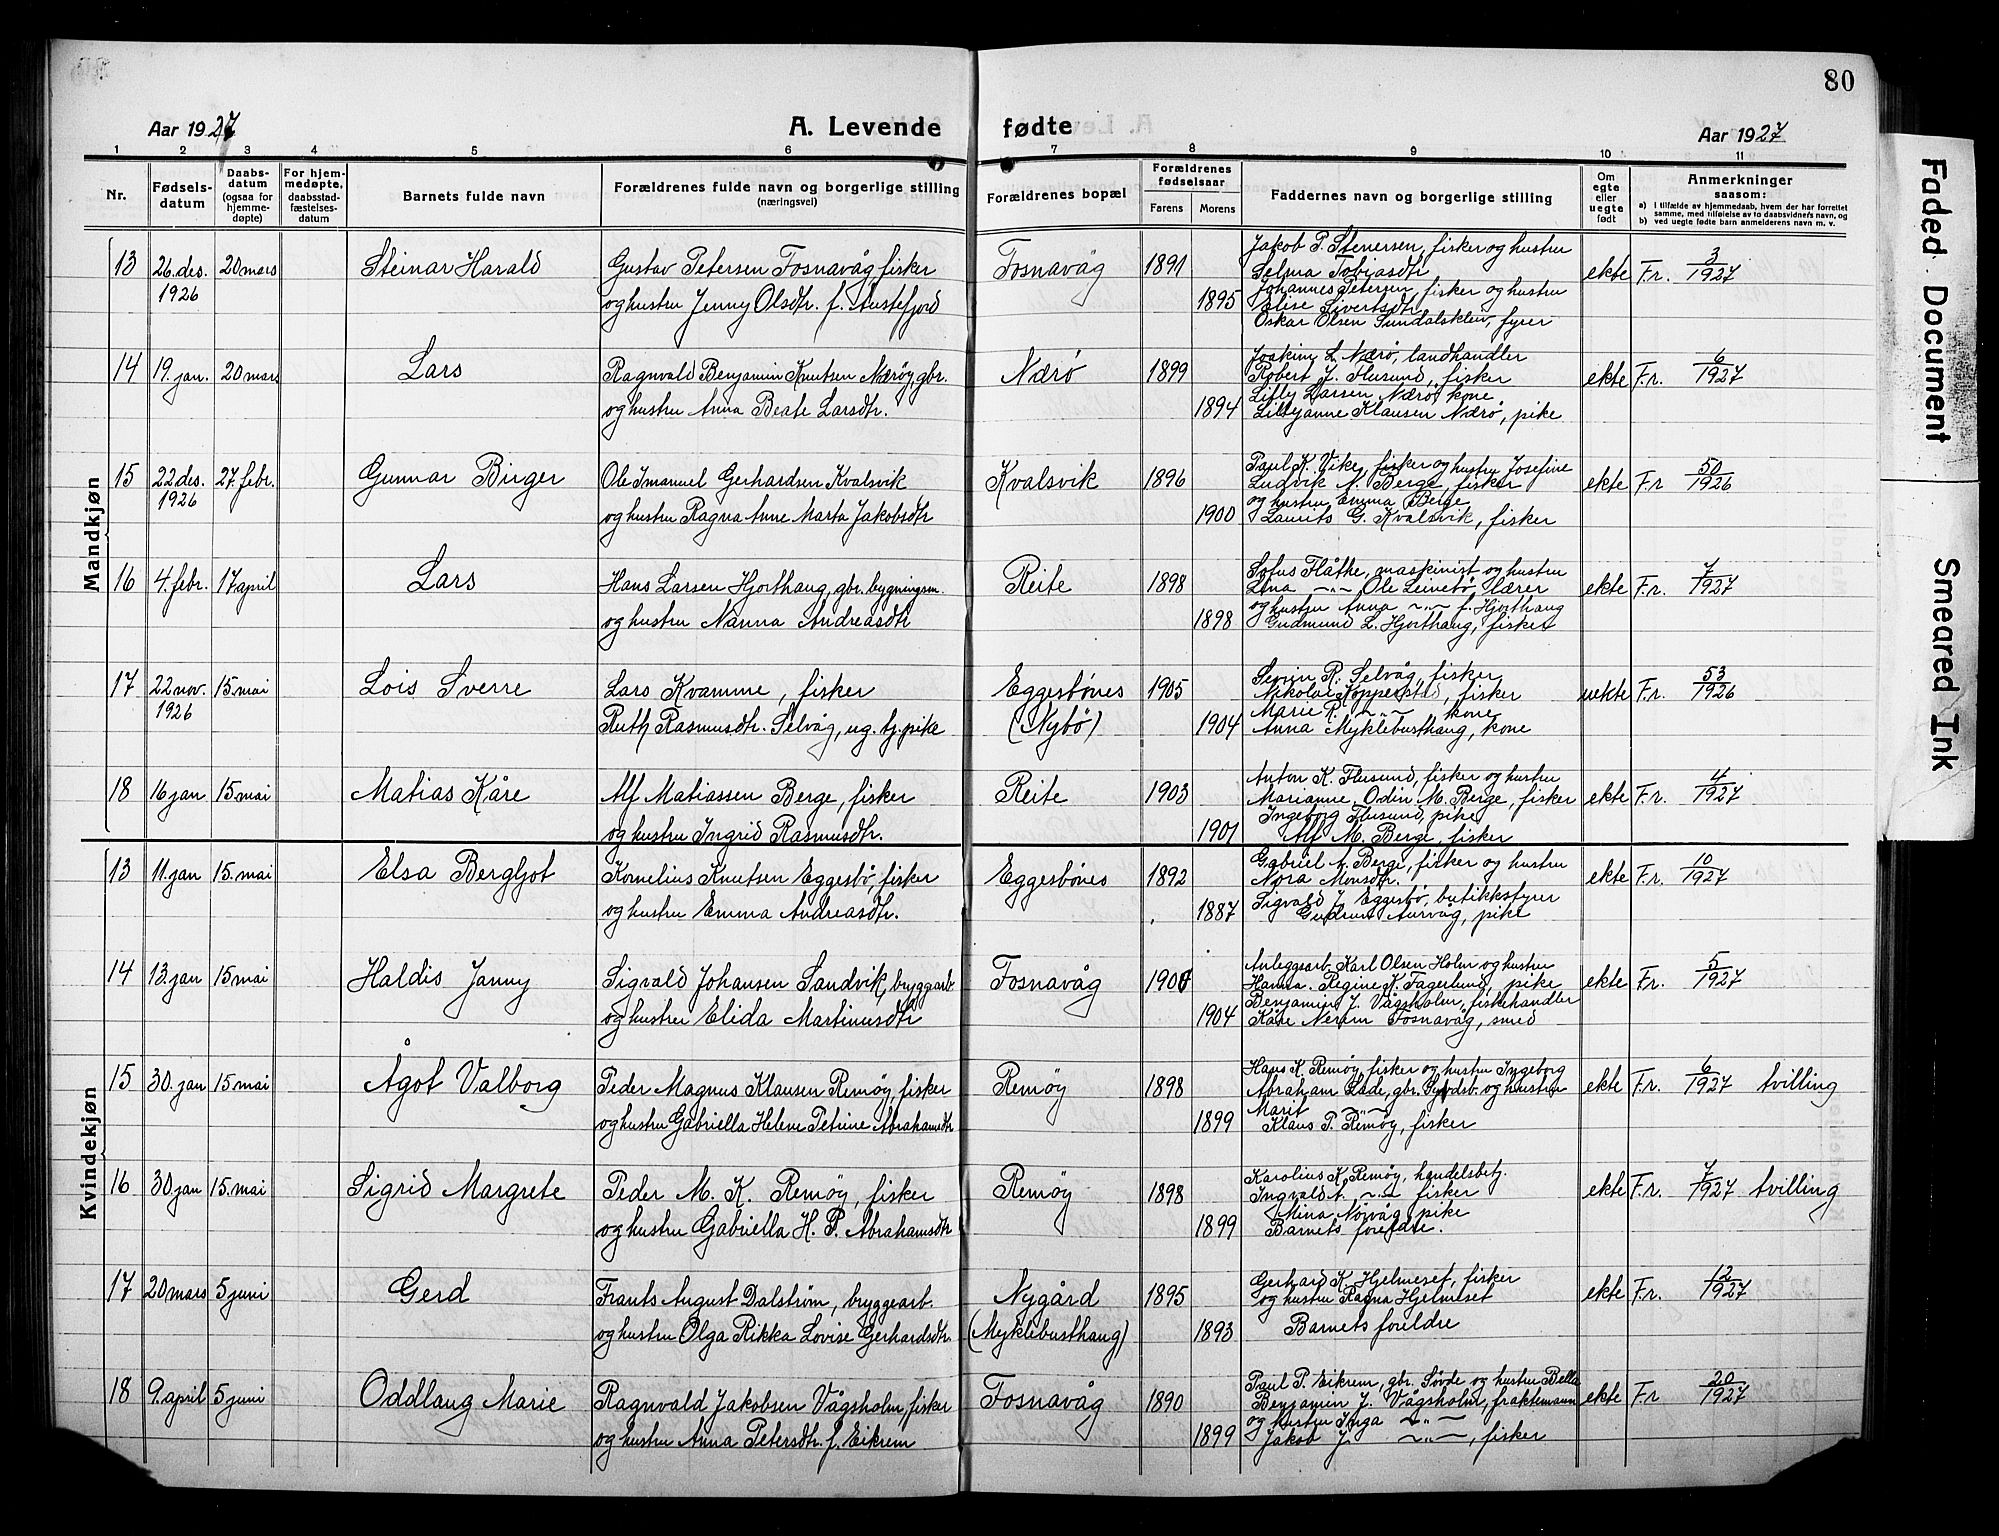 80
Aar 1927 A. Levende fødte Aar 1927
1 2 3 4 5 6 7 8 9 10 11
Nr.
Fødsels-
datum
Daabs-
datum
(ogsaa for
hjemme-
døpte)
For hjem-
medøpte,
daabsstad-
fæstelses-
datum
Barnets fulde navn
Forældrenes fulde navn og borgerlige stilling
(næringsvei)
Forældrenes bopæl
Forældrenes
fødselsaar
Farens. Morens.
Faddernes navn og borgerlige stilling
Om
egte
eller
uegte
født
Anmerkninger
saasom:
a) I tilfælde av hjemmedaab, hvem der har forrettet
samme, med tilføielse av to daabsvidners navn, og
b) ved uegte fødte barn anmelderens navn m. v.
Mandkjøn
13 26. des. 1926 20 mars Steinar Harald
Gustav Petersen Fosnavåg fisker
og hustru Jenny Olsdtr. f. Austefjord
Fosnavåg 1891 1895
Jakob P. Stenersen, fisker og hustru
Selma Tobiasdtr
Johannes Petersen, fisker og hustru
Elise Sivertsdtr
Oskar Olsen Sundalsklev, fyrer
ekte F.r. 3/1927
14 19. jan. 20 mars Lars
Ragnvald Benjamin Knutsen Nærøy, gbr.
og hustru Anna Beate Larsdtr.
Nærø 1899 1894
Joakim L. Nærø, landhandler
Robert J. Flusund, fisker
Larsen Nærø, kone
Lillyanne Klausen Nærø, pike
ekte F.r. 6/1927
15 22 des. 1926 27. febr. Gunnar Birger
Ole Imanuel Gerhardsen Kvalsvik
og hustru Ragna Anne Marta Jakobsdtr
Kvalsvik 1896 1900
Paul K. Vike, fisker og hustru Josefine
Ludvik N. Berge, fisker
og hustru Emma Berge
Laurits G. Kvalsvik, fisker
ekte F.r 50/1926
16 4. febr. 17 april Lars
Hans Larsen Hjorthaug, gbr. bygningsm.
og hustru Nanna Andreasdtr
Reite 1898 1898
Sofus Flåthe, maskinist og hustru
Lina –"– Ole Leinebø, lærer
og hustru Anna –"– f. Hjorthaug
Gudmund L. Hjorthaug, fisker
ekte F.r. 7/1927
17 22 nov. 1926 15. mai Lois Sverre
Lars Kvamme, fisker
Ruth Rasmusdtr. Selvåg, ug. tj. pike
Eggesbønes
(Nybø) 1905 1904
Sevrin R. Selvåg, fisker
Nikolai Kopperstad, fisker
Marie R. –"– kone
Anna Myklebusthaug, kone
uekte F.r. 53/1926
18 16 jan 15 mai Matias Kåre
Alf Matiassen Berge, fisker
og hustru Ingrid Rasmusdtr.
Reite 1903 1901
Anton K. Flusund, fisker og hustru
Marianne, Odin M. Berge, fisker
Ingeborg Flusund, pike
Alf M. Berge, fisker
ekte F.r. 4/1927
Kvindekjøn
13 11. jan 15. mai Elsa Bergljot
Kornelius Knutsen Eggesbø, fisker
og hustru Emma Andreasdtr.
Eggesbønes 1892 1887
Gabriel A. Berge, fisker og hustru
Nora Monsdtr.
Sigvald J. Eggesbø, butikkstyrer
Gudrun Aurvåg, pike
ekte F.r. 10/1927
14 13. jan 15 mai Haldis Janny
Sigvald Johansen Sandvik, bryggearb.
og hustru Elida Martinusdtr
Fosnavåg 1904
Anleggsarb. Karl Olsen Holm og hustru
Hanna. Regine K. Fagerlund, pike
Benjamin J. Vågsholm, fiskehandler
Kåre Nerem Fosnavåg, smed
ekte F.r. 5/1927
15 30. jan 15 mai Ågot Valborg
Peder Magnus Klausen Remøy, fisker
og hustru Gabriella Helene Petrine Abrahamsdtr
Remøy 1898 1899
Hans K. Remøy, fisker og hustru Ingeborg
Abraham Lade, gbr. og hustru
Marit –"–
Klaus P. Remøy, fisker
ekte F.r. 6/1927 tvilling
16 30 jan 15. mai Sigrid Margrete
Peder M. K. Remøy, fisker
og hustru Gabriella H. P. Abrahamsdtr
Remøy 1898 1899
Karolius K. Remøy, handelsbetj.
Ingvald A. –"– fisker
Mina Norvåg, pike
Barnets foreldre.
ekte F.r. 7/1927 tvilling
17 20 mars 5 juni Gerd
Frants August Dalstrøm, bryggearb.
og hustru Olga Rikka Lovise Gerhardsdtr.
Nygård
(Myklebusthaug) 1895 1893
Gerhard K. Hjelmeset, fisker
og hustru Ragna Hjelmeset
Barnets foreldre
ekte F.r. 12/1927
18 9. april 5 juni Oddlaug Marie
Ragnvald Jakobsen Vågsholm, fisker
og hustru Anna Petersdtr. f. Eikrem
Fosnavåg 1890 1899
Paul P. Eikrem, gbr. Søvde og hustru Bella
Benjamin J. Vågsholm, fraktemann
og hustru Inga –"–
Jakob J. –"–, fisker
ekte F.r 20/1927
Faded Document
Smeared Ink